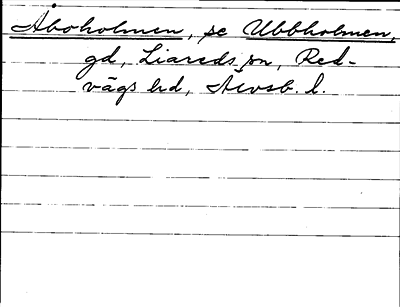 Åboholmen, se Ubbholmen,
gd, Liareds sn, Red-
vägs hd, Älvsb. l.